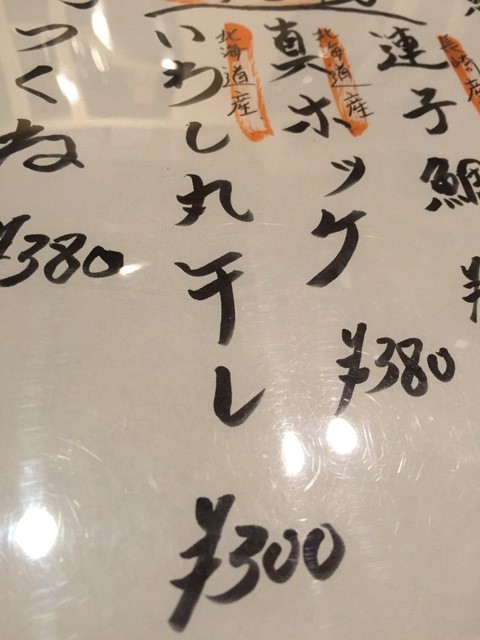 長崎産
連子鯛
北海道産
真ホッケ
¥380
北海道産
いわし丸干し
¥300
つくね
¥380